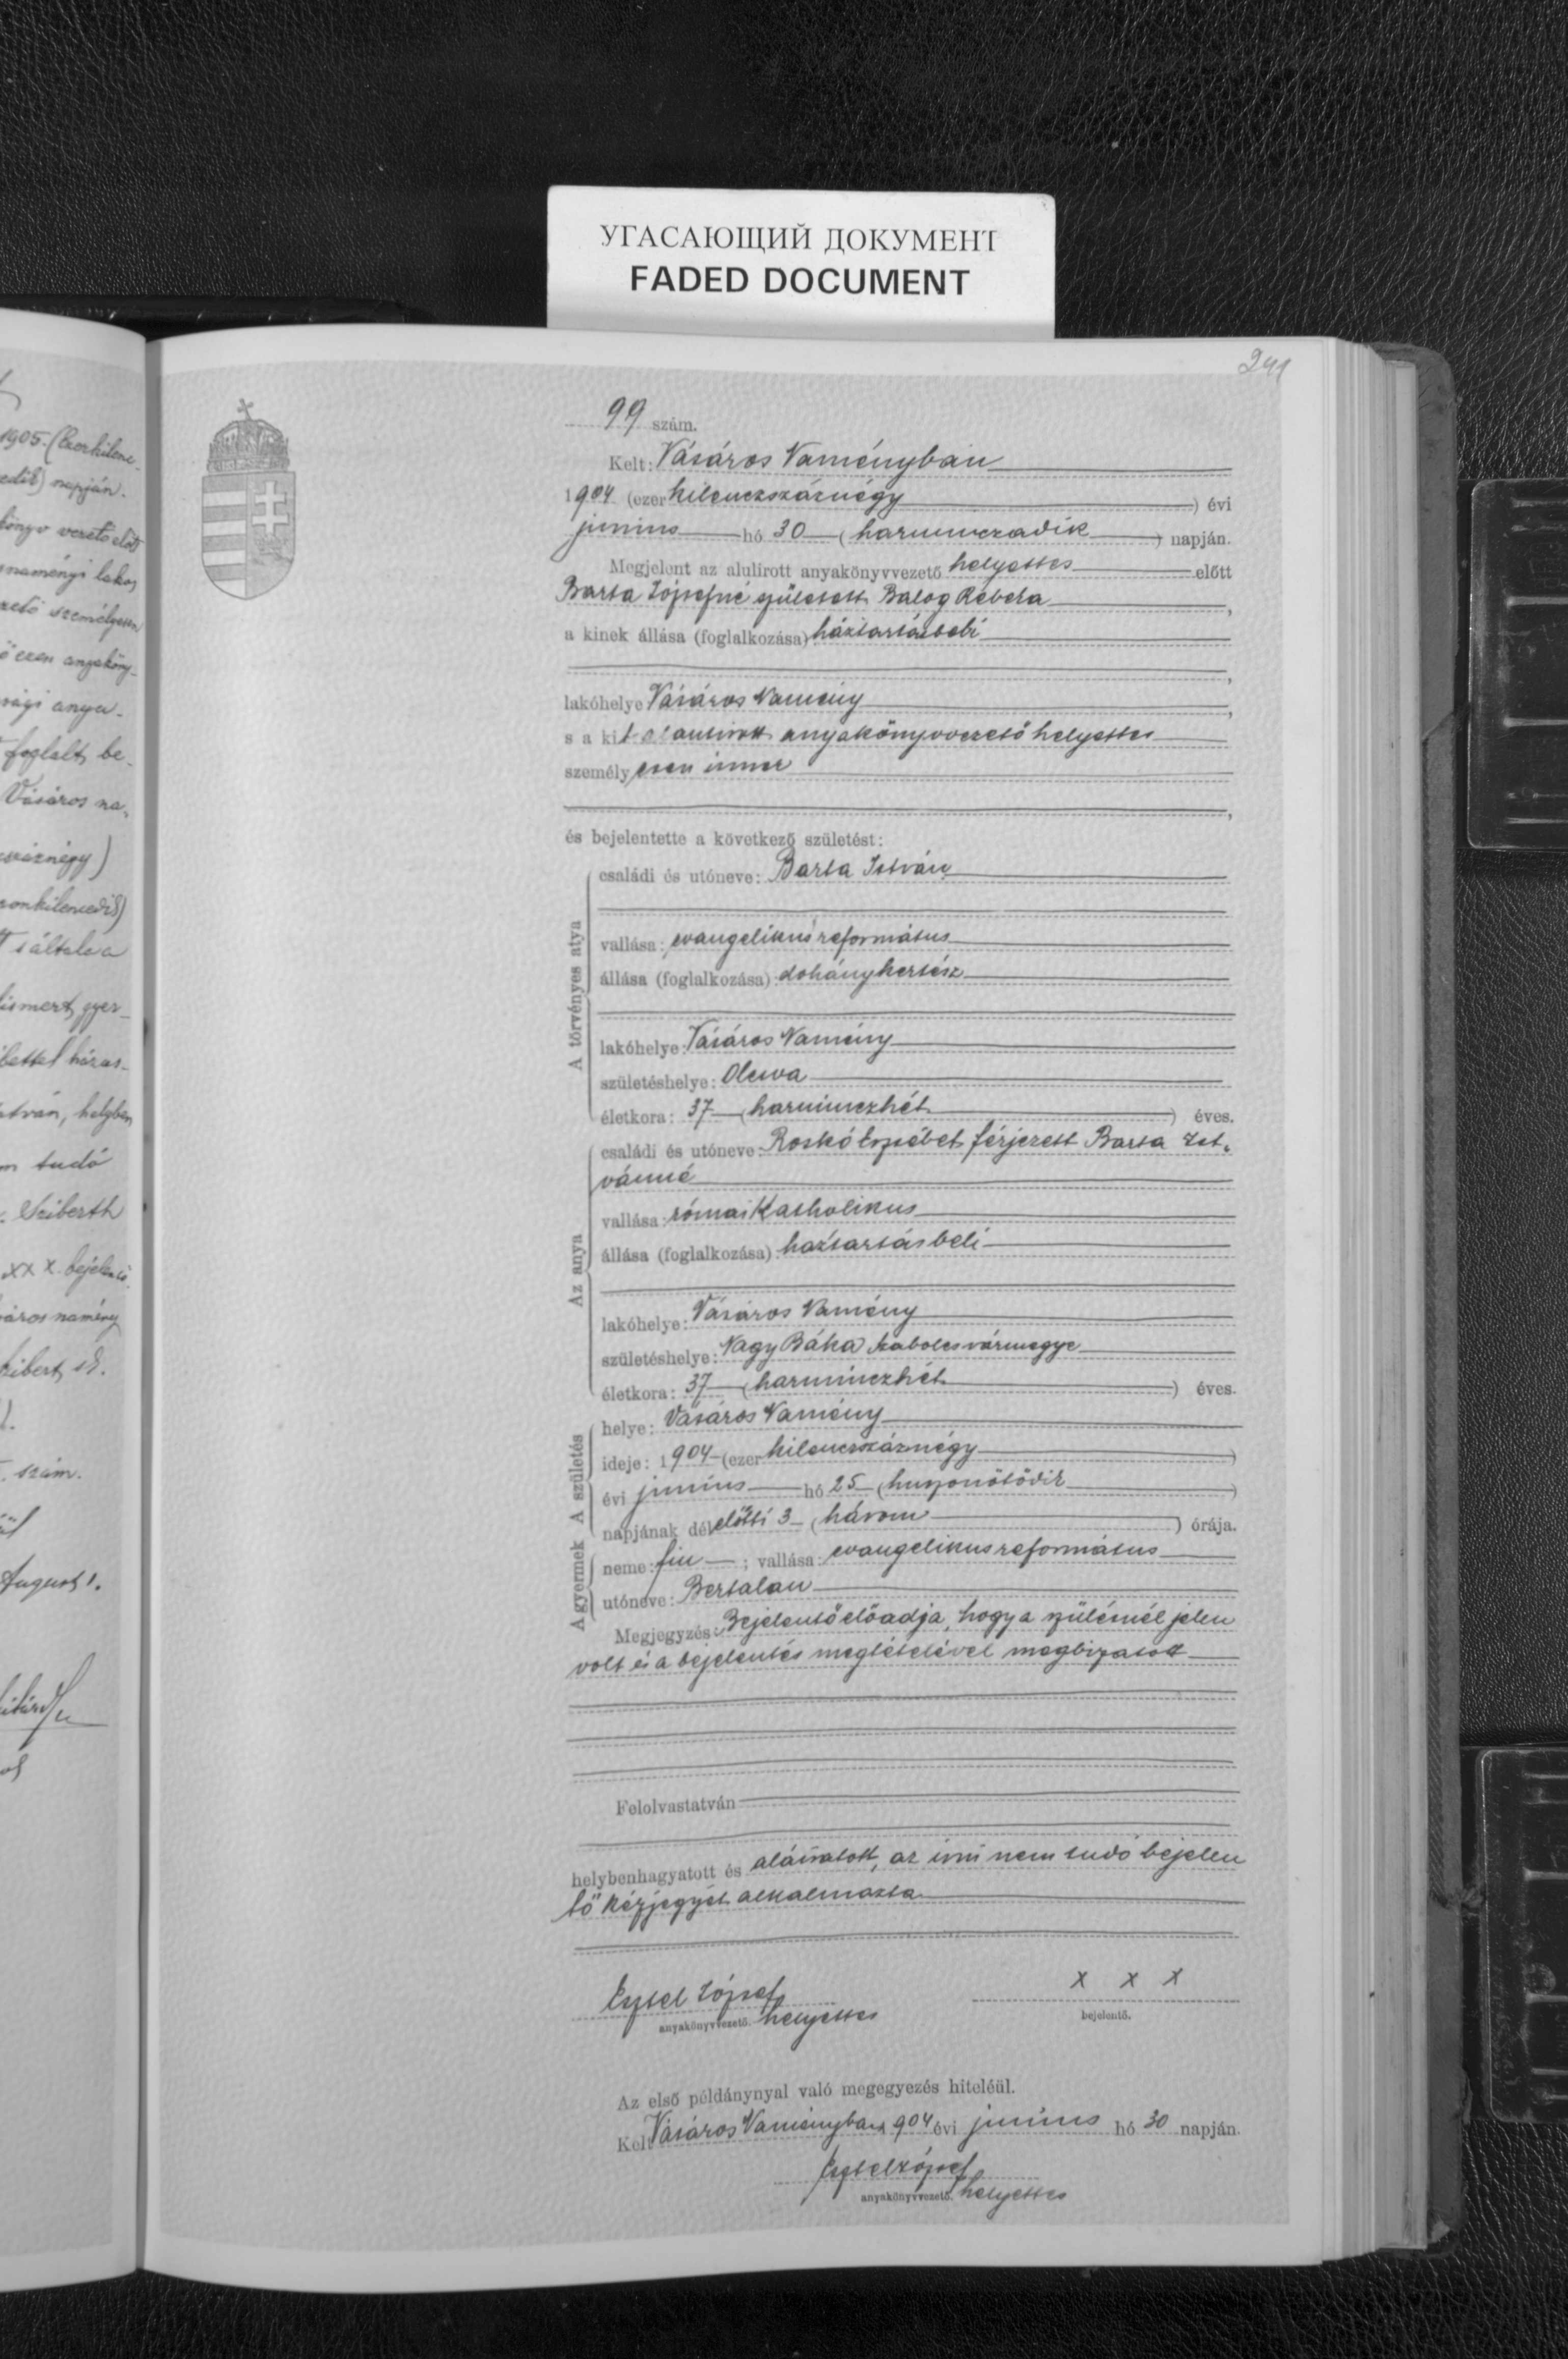 УГАСАЮЩИЙ ДОКУМЕНТ
FADED DOCUMENT
241
1905. (Ezerkilenc-
napján.
könyv vezető előtt
naményi lakos,
személyesen
ezen anyaköny-
anya-
foglalt be-
Vásáros na-
száznégy)
általa a
ismert, gyer-
István, helyben
tudó
Seiberth
xxx bejelentő.
város namény
szám.
August 1.
99 szám.
Kelt: Vásáros Naményban
1904 (ezer kilenczszáznégy) évi
junius hó 30 (harminczadik) napján.
Megjelent az alulirott anyakönyvvezető helyettes előtt
Barta Józsefné született Balog Rebeka,
a kinek állása (foglalkozása) háztartásbeli
,
lakóhelye Vásáros Namény,
s a kit alantirott anyakönyvvezető helyettes
személyesen ismer
,
és bejelentette a következő születést:
A törvényes atya
családi és utóneve: Barta István
vallása: evangelikus református
állása (foglalkozása): dohánykertész
lakóhelye: Vásáros Namény
születéshelye: Olcsva
életkora: 37 (harminczhét) éves.
Az anya
családi és utóneve: Roskó Erzsébet férjezett Barta Ist-
vánné
vallása: római Katholikus
állása (foglalkozása) háztartásbeli
lakóhelye: Vásáros Namény
születéshelye: Nagy Báka Szabolcsvármegye
életkora: 37 (harminczhét) éves.
A születés
helye: Vásáros Namény
ideje: 1904 (ezer kilenczszáznégy)
évi junius hó 25 (huszonötödik)
napjának délelőtti 3 (három) órája.
A gyermek
neme: fiu; vallása: evangelikus református
utóneve: Bertalan
Megjegyzés: Bejelentő előadja, hogy a szülésnél jelen
volt és a bejelentés megtételével megbizatott
Felolvastatván
helybenhagyatott és aláiratott, az irni nem tudó bejelen
tő kézjegyét alkalmazta
József
anyakönyvvezető. helyettes
x x x
bejelentő.
Az első példánynyal való megegyezés hiteléül.
Kelt Vásáros Naményban 904 évi junius hó 30 napján.
József
anyakönyvvezető. helyettes